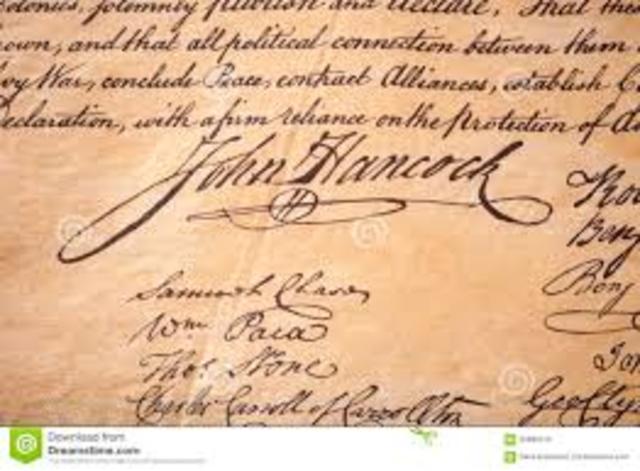 olonies, solemnly publish and declare, That these
own, and that all political connection between them
vy War, conclude Peace, contract Alliances, establish C
eclaration, with a firm reliance on the Protection of
John Hancock
Samuel Chase
Wm. Paca
Thos. Stone
Charles Carroll of Carrollton
Ro
Benj
Benj
Geo Cly
Download from
Dreamstime.com